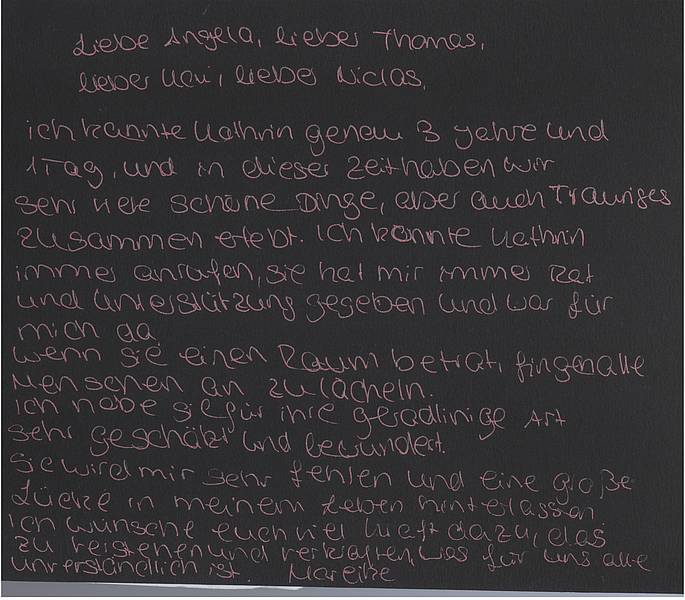 Liebe Angela, lieber Thomas,
lieber Uwi, lieber Niclas,
ich kannte Kathrin genau 3 Jahre und
1 Tag, und in dieser Zeit haben wir
sehr viele schöne Dinge, aber auch Trauriges
zusammen erlebt. Ich konnte Kathrin
immer anrufen, sie hat mir immer Rat
und Unterstützung gegeben und war für
mich da.
Wenn sie einen Raum betrat, fingen alle
Menschen an zu lächeln.
Ich habe sie für ihre geradlinige Art
sehr geschätzt und bewundert.
Sie wird mir sehr fehlen und eine große
Lücke in meinem Leben hinterlassen.
Ich wünsche euch viel Kraft dazu, das
zu verstehen und verkraften, was für uns alle
unverständlich ist. Mareike